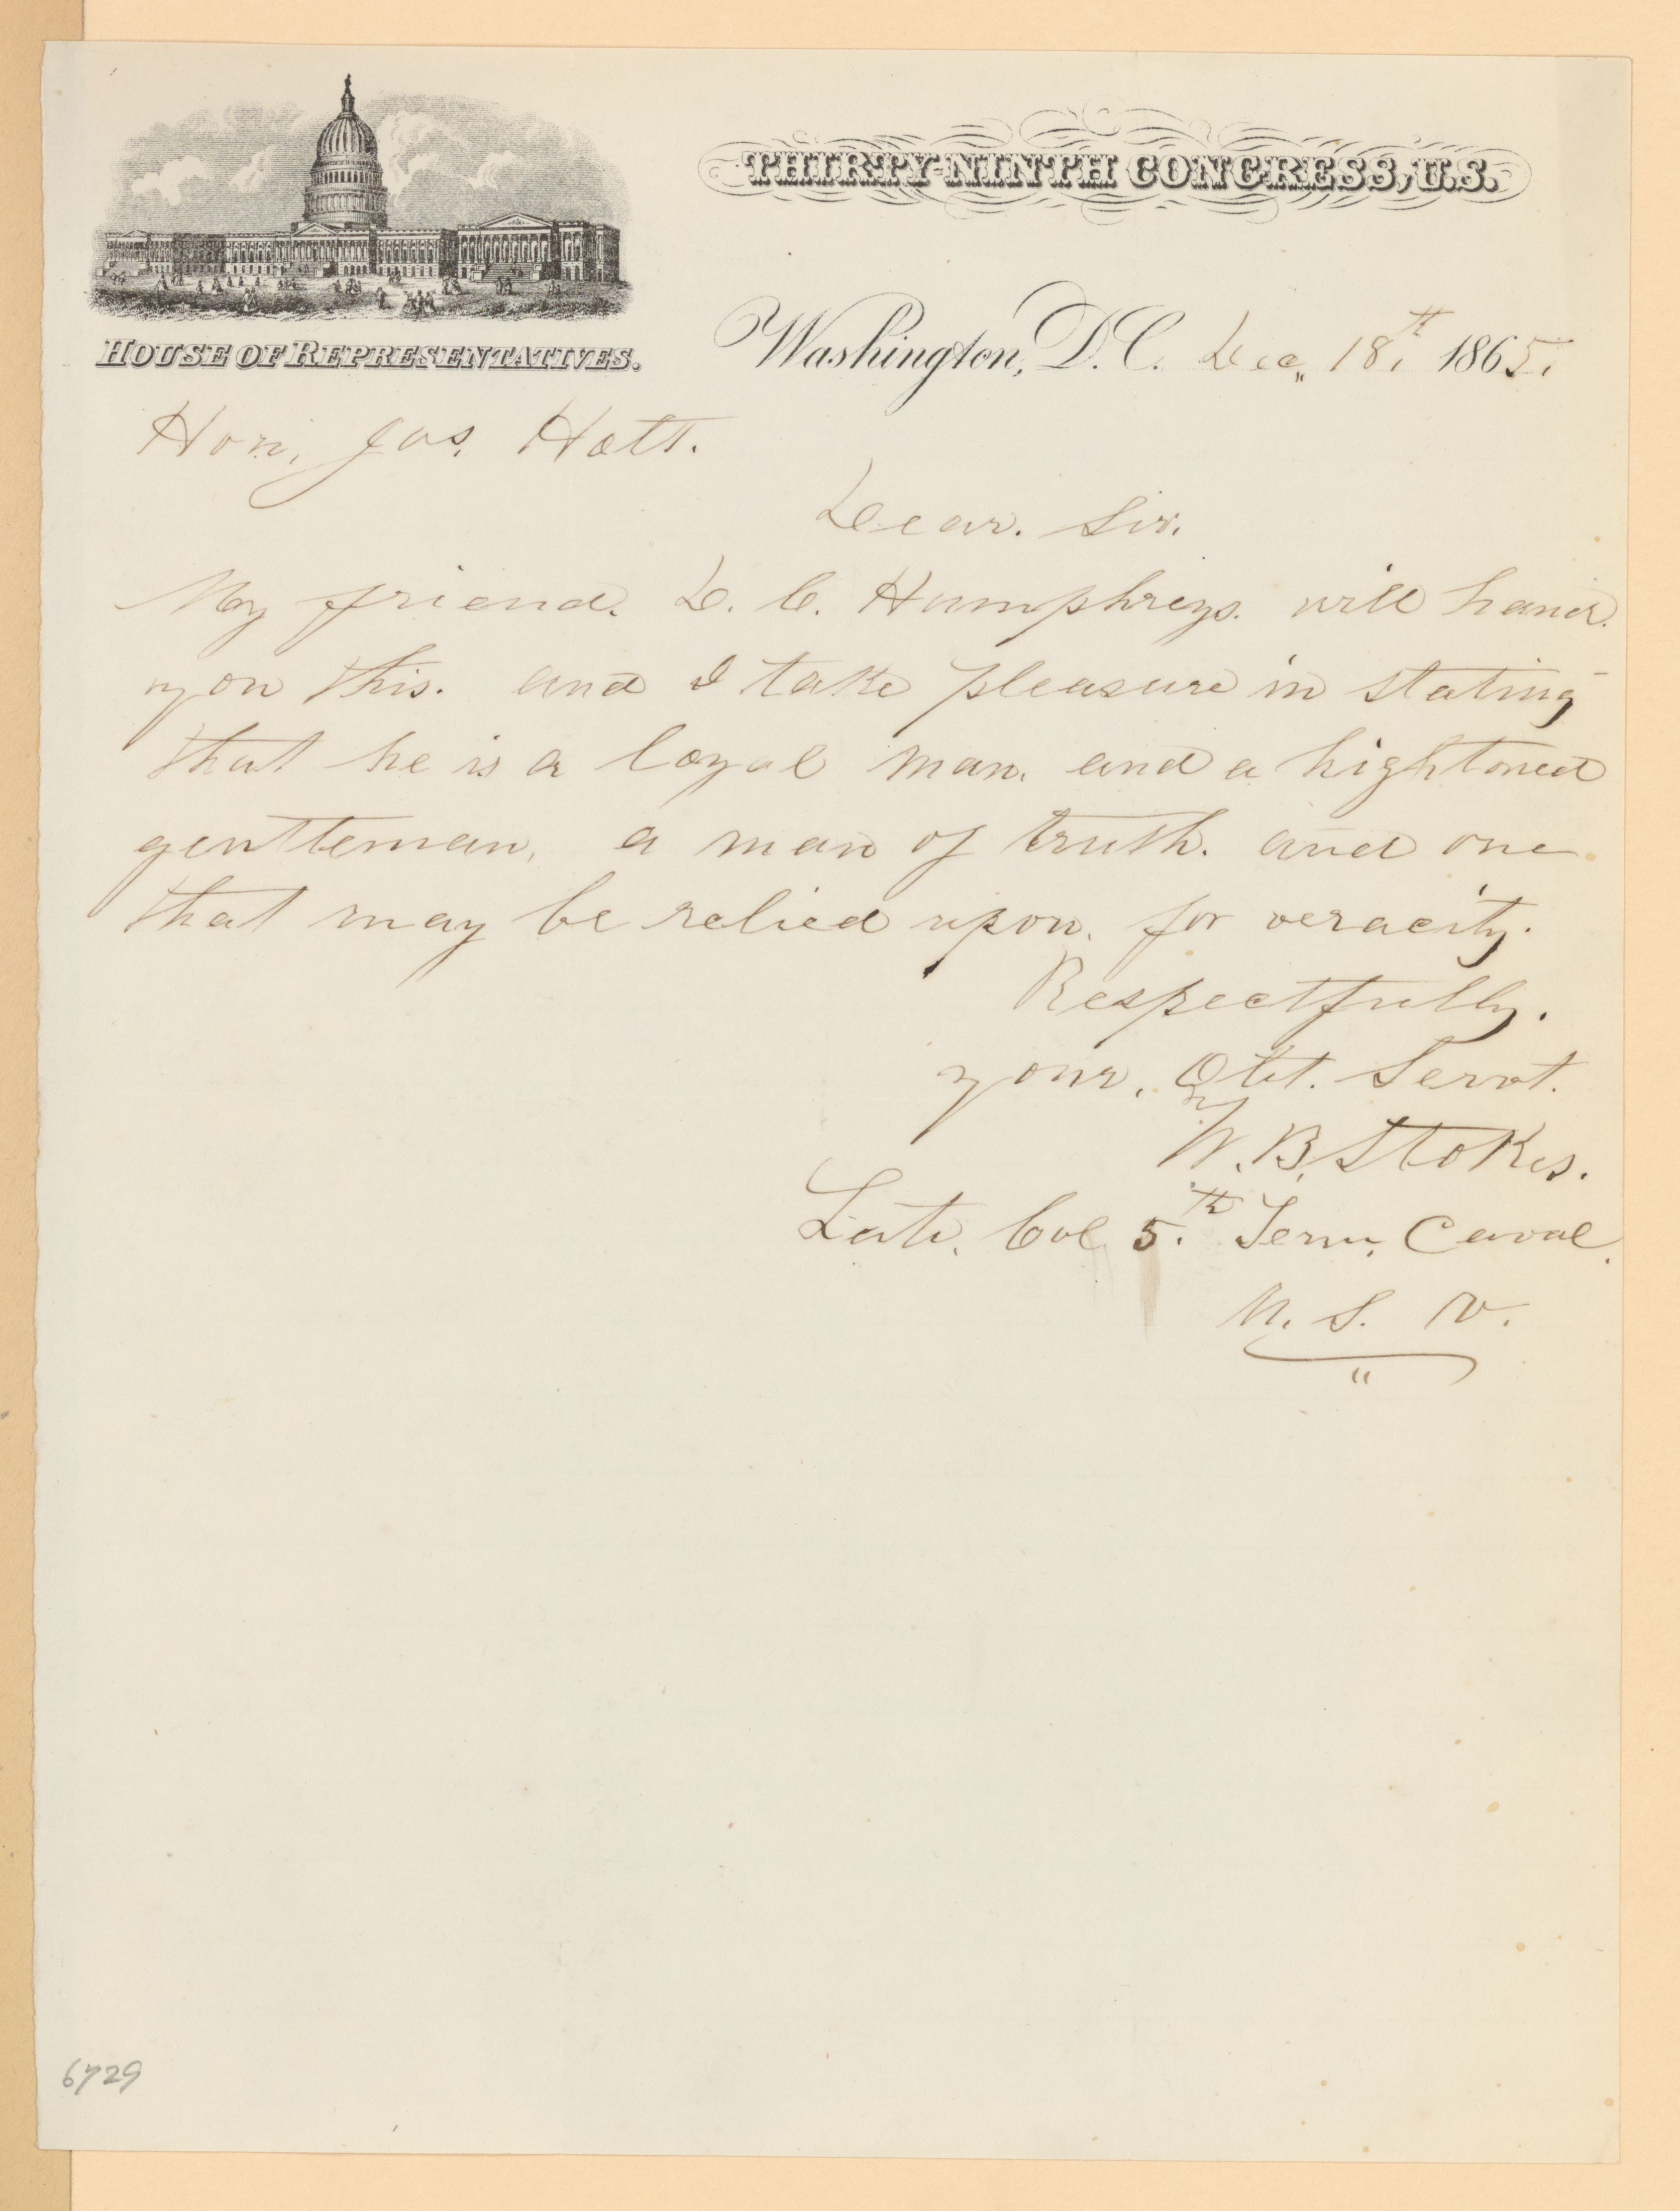 THIRTY-NINTH CONGRESS, U.S.
HOUSE OF REPRESENTATIVES.
Washington, D.C. Dec,, 18th, 1865.
Hon, Jos. Holt.
Dear. Sir.
My friend. D. C. Humphreys. will hand.
you this. and I take pleasure in stating
that he is a loyal man. and a hightoned
gentleman, a man of truth. and one
that may be relied upon. for veracity.
Respectfully.
your, Obt. Servt.
W. B. Stokes.
Late. Col 5.th Tenn. Caval.
U. S. V.
"
6729